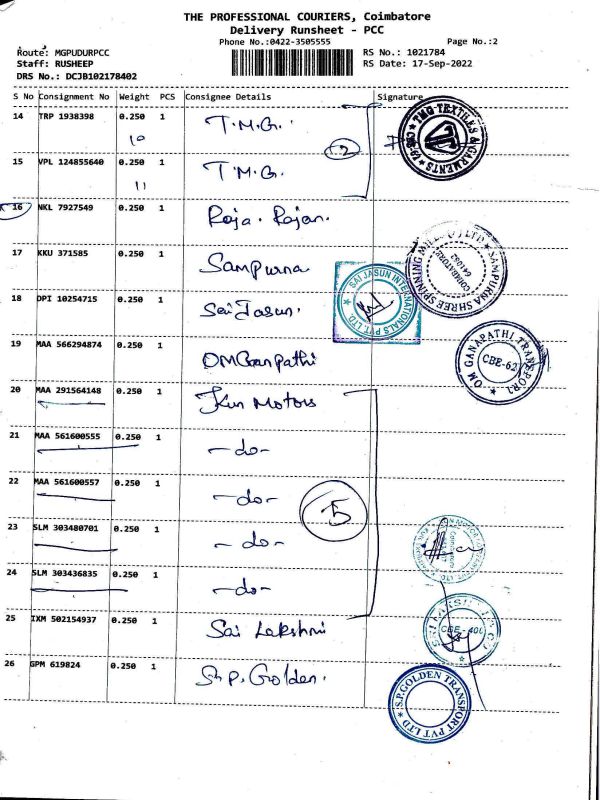 THE PROFESSIONAL COURIERS, Coimbatore
Delivery Runsheet - PCC
Phone No.:0422-3505555
Page No.:2
Route: MGPUDURPCC
RS No.: 1021784
Staff: RUSHEEP
RS Date: 17-Sep-2022
DRS No.: DCJB102178402
S No Consignment No Weight PCS Consignee Details Signature
14 TRP 1938398 0.250 1 T.M.G.
10
TMG TEXTILES & GARMENTS
15 VPL 124855640 0.250 1 T.M.G.
11
16 NKL 7927549 0.250 1 Roja. Rajan.
17 KKU 371585 0.250 1 Sampurna
SAMPURNA SHREE SPINNING
COIMBATORE
18 DPI 10254715 0.250 1 Sai Jasun.
SAI JASUN INTERNATIONALS PVT. LTD.
19 MAA 566294874 0.250 1 OMGanpathi
OM GANAPATHI TRANSPORT
CBE-62
20 MAA 291564148 0.250 1 Motors
21 MAA 561600555 0.250 1 -do-
22 MAA 561600557 0.250 1 -do-
5
23 SLM 303480701 0.250 1 -do-
24 SLM 303436835 0.250 1 -do-
25 IXM 502154937 0.250 1 Sai Lakshmi
CBE
26 GPM 619824 0.250 1 S.P. Golden.
S.P.GOLDEN TRANSPORT PVT LTD